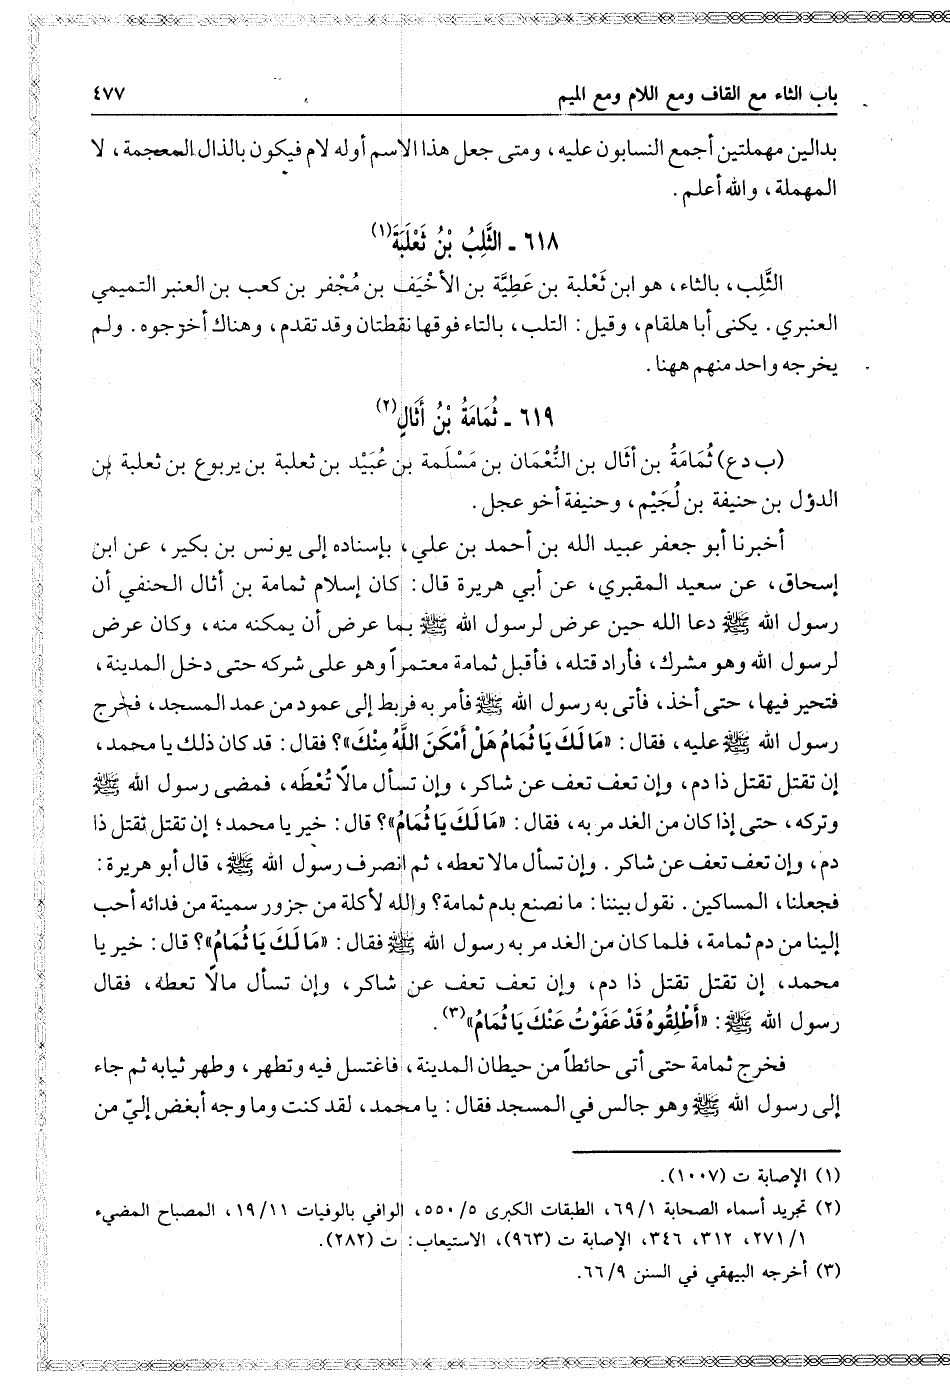 باب الثاء مع القاف ومع اللام ومع الميم ٤٧٧
بدالين مهملتين أجمع النسابون عليه، ومتى جعل هذا الاسم أوله لام فيكون بالذال المعجمة، لا
المهملة، والله أعلم.
٦١٨ ـ الثَّلِبُ بْنُ ثَعْلَبَةَ(١)
الثَّلِب، بالثاء، هو ابن ثَعْلبة بن عَطِيَّة بن الأخْيَف بن مُجْفر بن كعب بن العنبر التميمي
العنبري. يكنى أبا هلقام، وقيل: التلب، بالتاء فوقها نقطتان وقد تقدم، وهناك أخرجوه. ولم
يخرجه واحد منهم ههنا.
٦١٩ ـ ثُمَامَةُ بْنُ أَثَالٍ(٢)
(ب د ع) ثُمَامَةُ بن أثَال بن النُّعْمَان بن مَسْلَمة بن عُبَيْد بن ثعلبة بن يربوع بن ثعلبة بن
الدؤل بن حنيفة بن لُجَيْم، وحنيفة أخو عجل.
أخبرنا أبو جعفر عبيد الله بن أحمد بن علي، بإسناده إلى يونس بن بكير، عن ابن
إسحاق، عن سعيد المقبري، عن أبي هريرة قال: كان إسلام ثمامة بن أثال الحنفي أن
رسول الله ﷺ دعا الله حين عرض لرسول الله ﷺ بما عرض أن يمكنه منه، وكان عرض
لرسول الله وهو مشرك، فأراد قتله، فأقبل ثمامة معتمراً وهو على شركه حتى دخل المدينة،
فتحير فيها، حتى أخذ، فأتى به رسول الله ﷺ فأمر به فربط إلى عمود من عمد المسجد، فخرج
رسول الله ﷺ عليه، فقال: «مَا لَكَ يَا ثُمَامُ هَلْ أَمْكَنَ اللَّهُ مِنْكَ»؟ فقال: قد كان ذلك يا محمد،
إن تقتل تقتل ذا دم، وإن تعف تعف عن شاكر، وإن تسأل مالًا تُعْطَه، فمضى رسول الله ﷺ
وتركه، حتى إذا كان من الغد مر به، فقال: «مَا لَكَ يَا ثُمَامُ»؟ قال: خير يا محمد؛ إن تقتل تقتل ذا
دم، وإن تعف تعف عن شاكر. وإن تسأل مالا تعطه، ثم انصرف رسول الله ﷺ، قال أبو هريرة:
فجعلنا، المساكين. نقول بيننا: ما نصنع بدم ثمامة؟ والله لأكلة من جزور سمينة من فدائه أحب
إلينا من دم ثمامة، فلما كان من الغد مر به رسول الله ﷺ فقال: «مَا لَكَ يَا ثُمَامُ»؟ قال: خير يا
محمد، إن تقتل تقتل ذا دم، وإن تعف تعف عن شاكر، وإن تسأل مالًا تعطه، فقال
رسول الله ﷺ: «أَطْلِقُوهُ قَدْ عَفَوْتُ عَنْكَ يَا ثُمَامُ»(٣).
فخرج ثمامة حتى أتى حائطاً من حيطان المدينة، فاغتسل فيه وتطهر، وطهر ثيابه ثم جاء
إلى رسول الله ﷺ وهو جالس في المسجد فقال: يا محمد، لقد كنت وما وجه أبغض إليّ من
(١) الإصابة ت (١٠٠٧).
(٢) تجريد أسماء الصحابة ٦٩/١، الطبقات الكبرى ٥٥٠/٥، الوافي بالوفيات ١٩/١١، المصباح المضيء
٢٧١/١، ٣١٢، ٣٤٦، الإصابة ت (٩٦٣)، الاستيعاب: ت (٢٨٢).
(٣) أخرجه البيهقي في السنن ٦٦/٩.